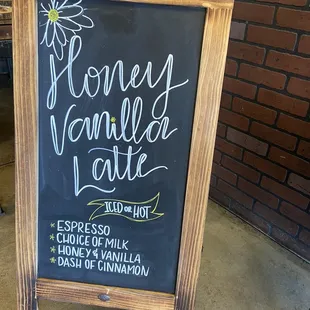 Honey
Vanilla
Latte
ICED OR HOT
* ESPRESSO
* CHOICE OF MILK
* HONEY & VANILLA
* DASH OF CINNAMON